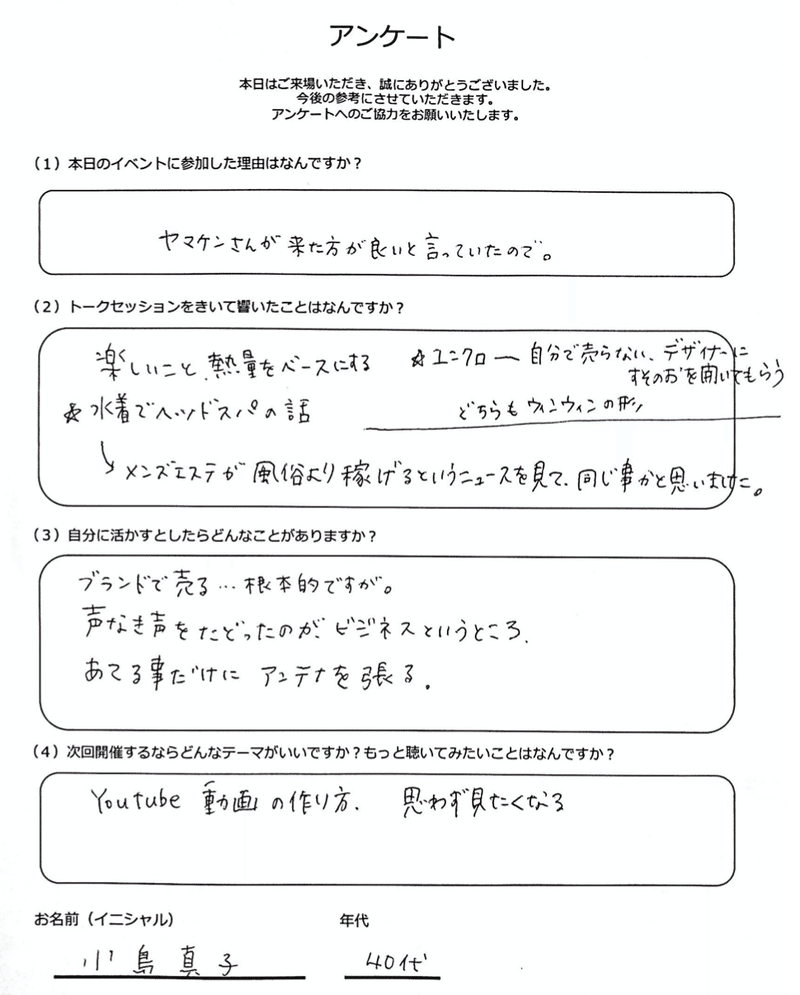 アンケート
本日はご来場いただき、誠にありがとうございました。
今後の参考にさせていただきます。
アンケートへのご協力をお願いいたします。
（1）本日のイベントに参加した理由はなんですか？
ヤマケンさんが来た方が良いと言っていたので。
（2）トークセッションをきいて響いたことはなんですか？
楽しいこと、熱量をベースにする
☆ユニクロ ― 自分で売らない、デザイナーに
すそのおを開いてもらう
☆水着でヘッドスパの話
どちらもウィンウィンの形
↳メンズエステが風俗より稼げるというニュースを見て、同じ事かと思いました。
（3）自分に活かすとしたらどんなことがありますか？
ブランドで売る…根本的ですが。
声なき声をたどったのが、ビジネスというところ、
あてる事だけにアンテナを張る。
（4）次回開催するならどんなテーマがいいですか？もっと聴いてみたいことはなんですか？
Youtube 動画の作り方、 思わず見たくなる
お名前（イニシャル） 年代
小島真子 40代